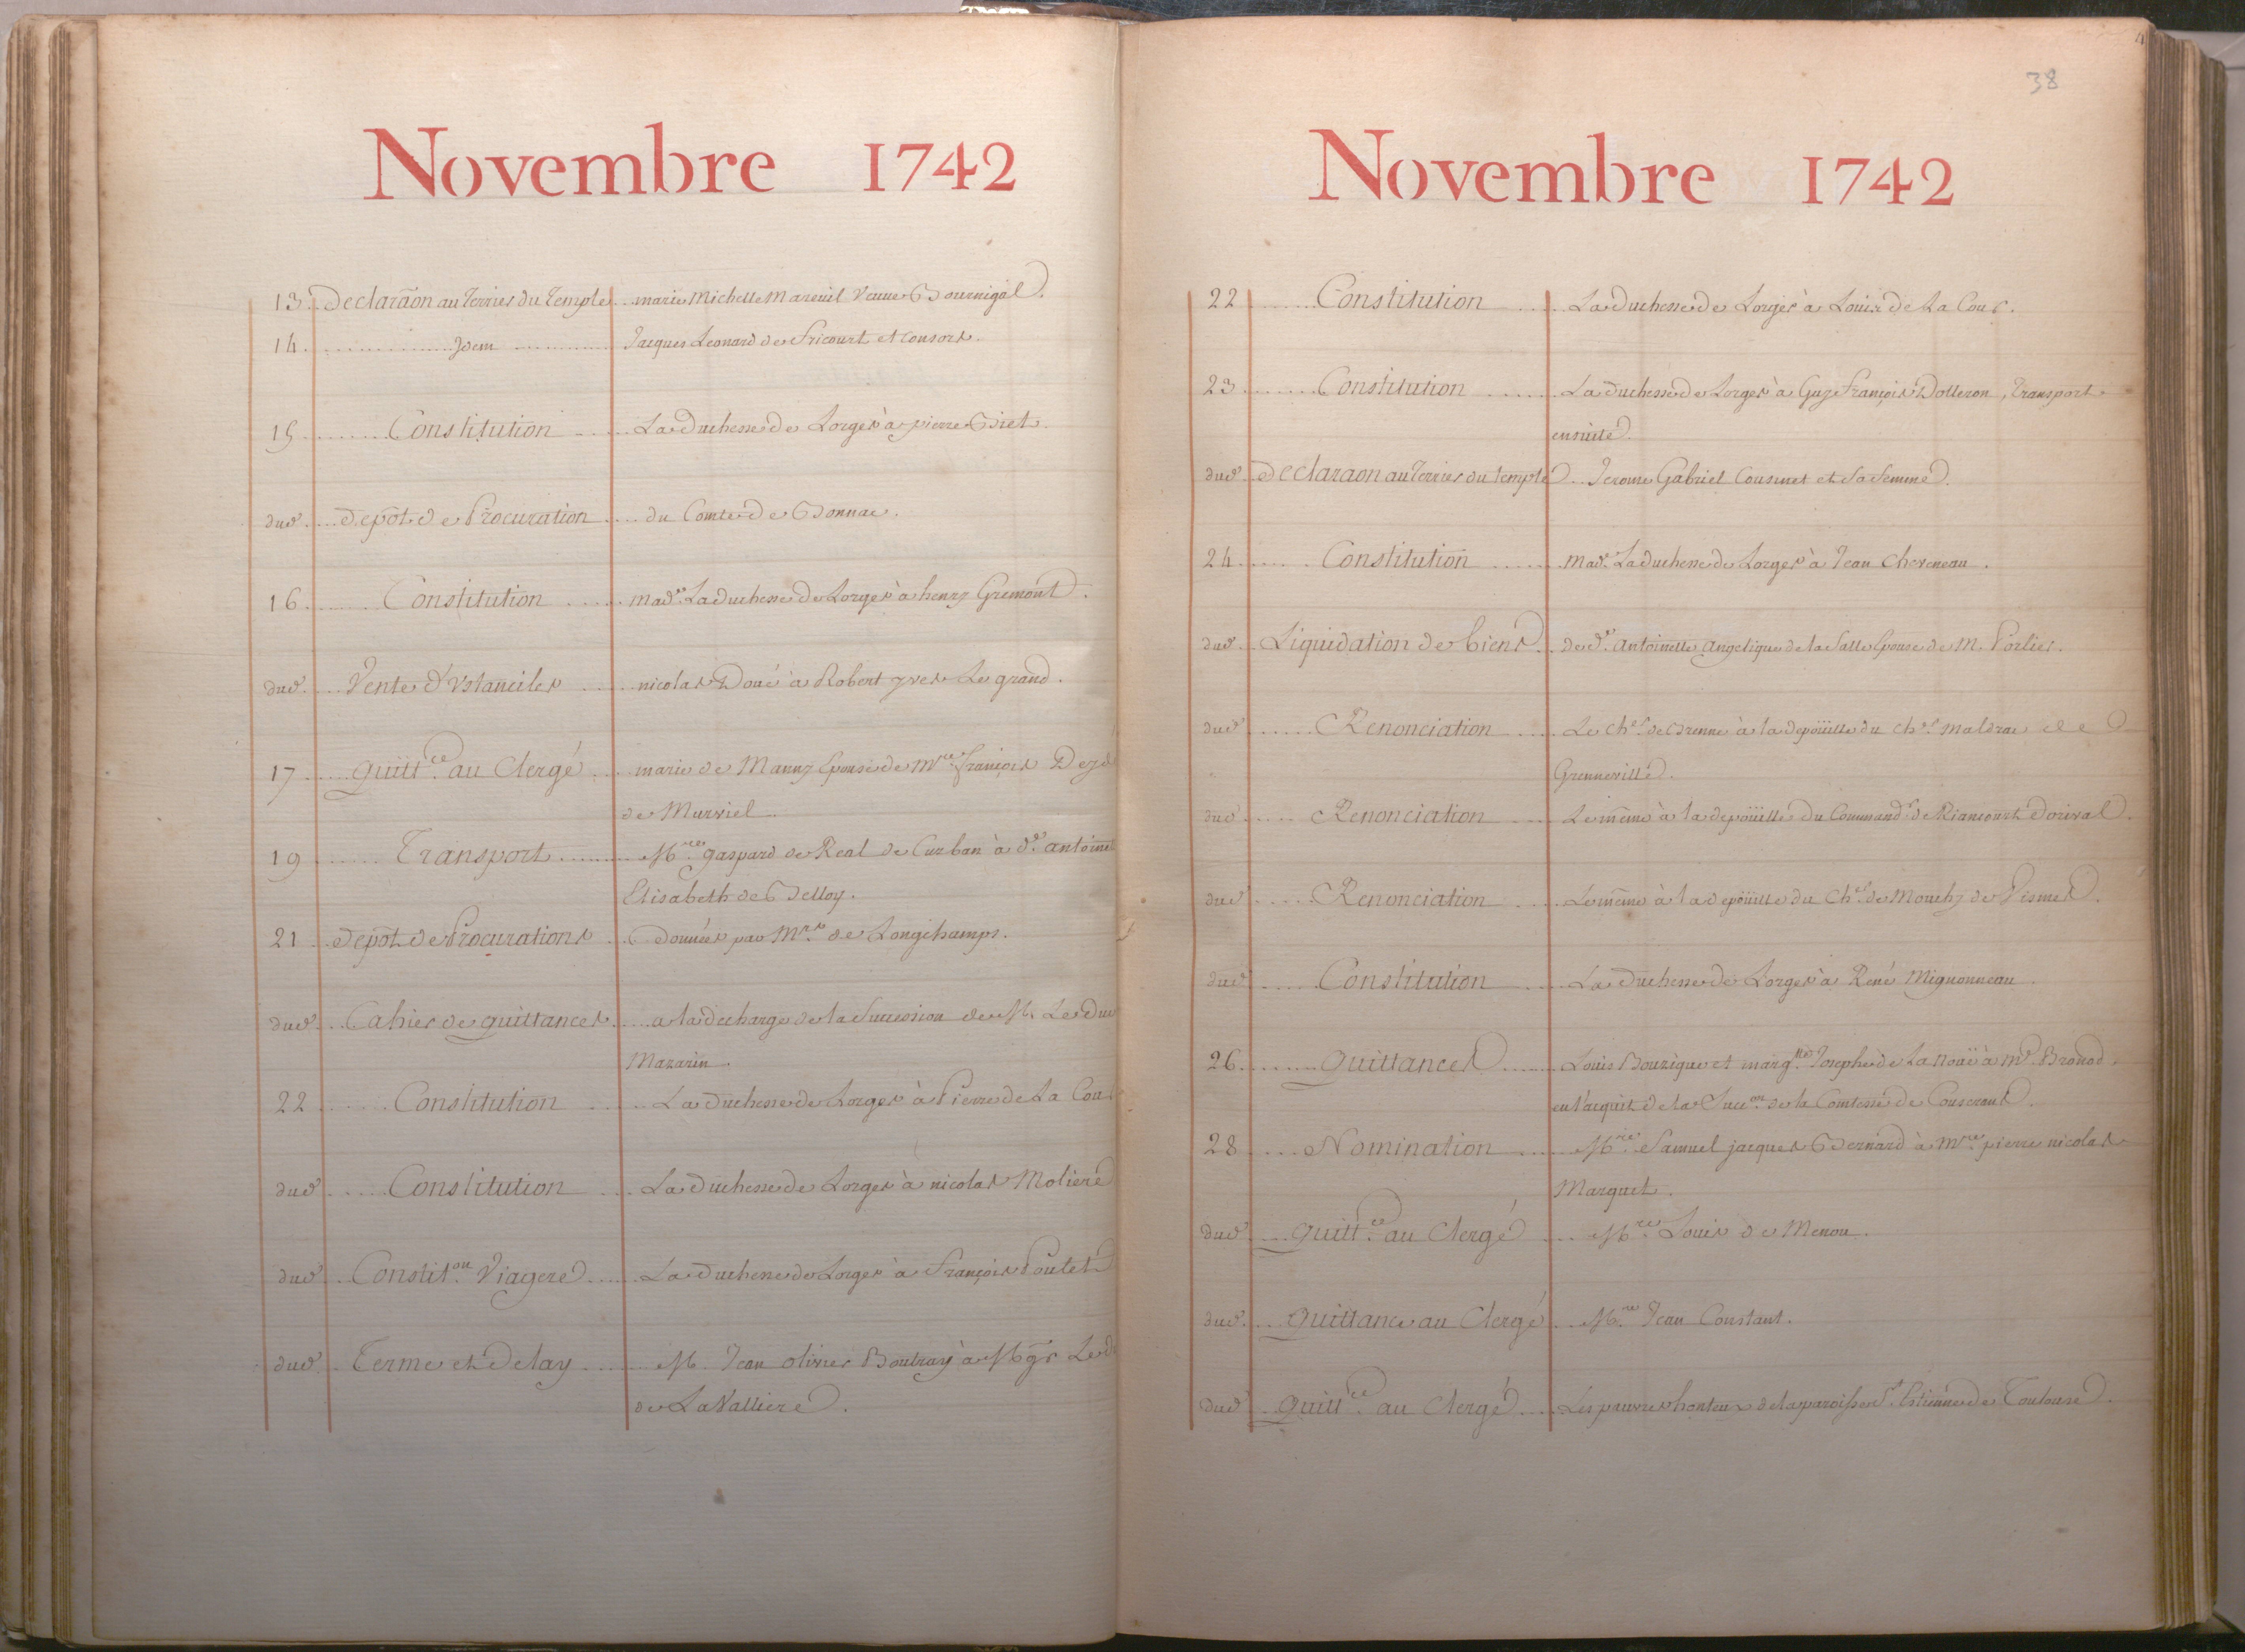 Novembre 1742
13. Declaraon au Terrier du Temple .. marie Michelle Mareüil Veuve Bournigal.
14. Idem Jacques Leonard de Fricourt et consors.
15 Constitution La Duchesse de Lorges à pierre Biet.
dud. depôt de Procuration du Comte de Bonnac.
16. Constitution Made. La duchesse de Lorges à henry Gremont.
dud. Vente d'Ustanciles nicolas Doué à Robert yves Le grand.
17 quittce. au Clergé marie de Manny Epouse de Mre. françois
de Murviel
19 Transport Mre. gaspard de Real de Curban à de.
Elisabeth de Belloy.
21 depôt de Procurations données par Mrs. de Longchamps.
dud. Cahier de quittances a la decharge de la Succession de M. Le Duc
Mazarin.
22 Constitution La Duchesse de Lorges à Pierre de La Cour
dud. Constitution La Duchesse de Lorges à nicolas Moliere
dud. Constiton. Viagere La Duchesse de Lorges à François Poulet
dud. Terme et Delay M. Jean olivier Boutray à Mgr. Le
de La Valliere.
38
Novembre 1742
22 Constitution La Duchesse de Lorges à Louis de La Cour.
23 Constitution La Duchesse de Lorges à Guy François Dolleron, Transport
ensuite.
dud. Declaraon au Terrier du Temple .. Jerome Gabriel Cousinet et sa femme.
24 Constitution Made. La duchesse de Lorges à Jean Cheveneau.
dud. Liquidation de biens de de. antoinette angelique de la Salle Epouse de M. Porlier.
dud. Renonciation Le Cher. de Brenne à la depöüille du Cher. Maldrac de
Grenneville.
dud. Renonciation Le même à la depöüille du Command.r de Riancourt Dorival.
dud. Renonciation Le même à la depöüille du Cher. de Mouchy de Vismes.
dud. Constitution La Duchesse de Lorges à René Mignonneau.
26 quittances Louis Bouzigue et marg.te Josephe de La Noüe à Me Bronod.
en l'acquit de la Succon. de la Comtesse de Couserans.
28 Nomination Mre. Samuel jacques Bernard à Mre. pierre nicolas
Marquet.
dud. quittce. au Clergé Mre. Louis de Menou.
dud. quittance au Clergé Mre. Jean Constant.
dud. quittce. au Clergé Les pauvres honteux de la paroisse St. Estienne de Toulouse.